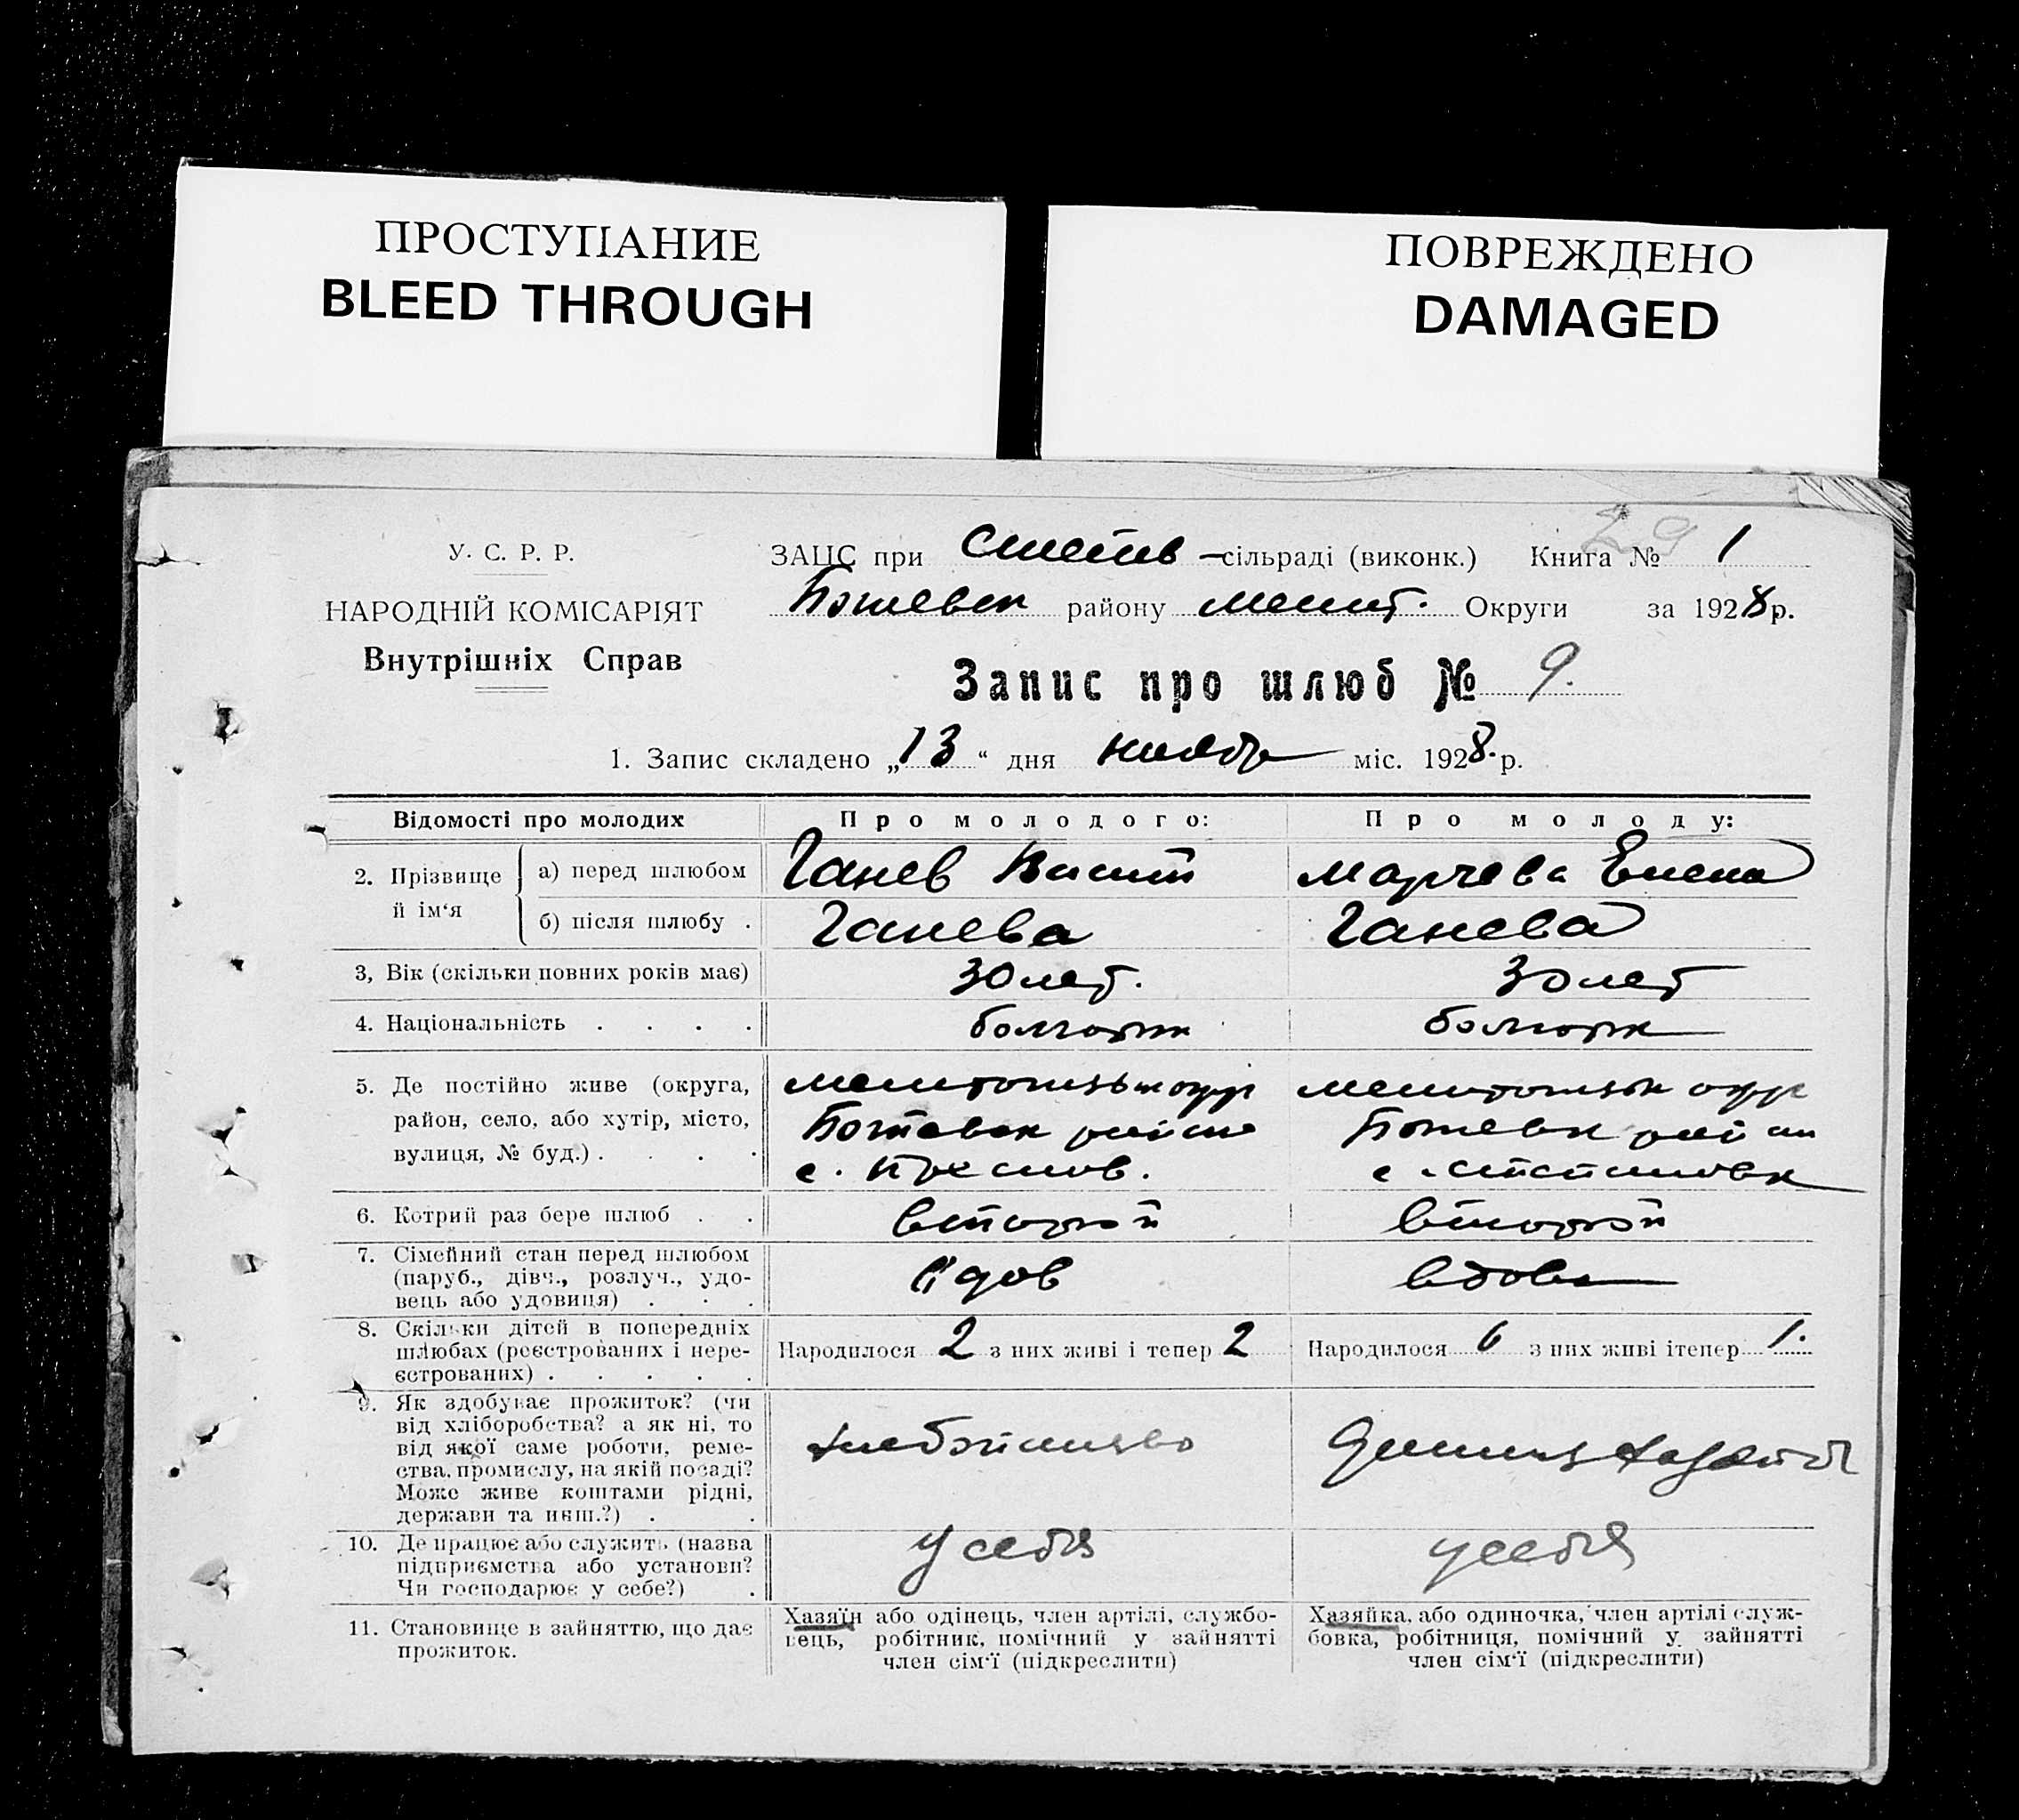 ПРОСТУПАНИЕ
BLEED THROUGH
ПОВРЕЖДЕНО
DAMAGED
29
У. С. Р. Р.
НАРОДНІЙ КОМІСАРІЯТ
Внутрішніх Справ
ЗАЦС при сільраді (виконк.) Книга № 1
району Мелит. Округи за 1928 р.
Запис про шлюб № 9.
1. Запис складено „13“ дня ноября міс. 1928 р.
Відомості про молодих
Про молодого:
Про молоду:
2. Прізвище й ім'я
а) перед шлюбом
Ганев
Марчева Елена
б) після шлюбу .
Ганева
Ганева
3, Вік (скільки повних років має)
30 лет.
30 лет
4. Національність . . . .
болгарин
болгарк
5. Де постійно живе (округа,
район, село, або хутір, місто,
вулиця, № буд.) . . . .
Ботевск район
с.
Ботевск район
с.
6. Котрий раз бере шлюб . .
второй
второй
7. Сімейний стан перед шлюбом
(паруб., дівч., розлуч., удо-
вець або удовиця) . . .
вдов
вдова
8. Скільки дітей в попередніх
шлюбах (реєстрованих і нере-
єстрованих) . . . . .
Народилося 2 з них живі і тепер 2
Народилося 6 з них живі ітепер 1.
9. Як здобуває прожиток? (чи
від хліборобства? а як ні, то
від якої саме роботи, реме-
ства, промислу, на якій посаді?
Може живе коштами рідні,
держави та инш.?) . .
10. Де працює або служить (назва
підприємства або установи?
Чи господарює у себе?) .
у себя
у себя
11. Становище в зайняттю, що дає
прожиток.
Хазяїн або одінець, член артілі, службо-
вець, робітник, помічний у зайнятті
член сім'ї (підкреслити)
Хазяйка, або одиночка, член артілі служ-
бовка, робітниця, помічний у зайнятті
член сім'ї (підкреслити)